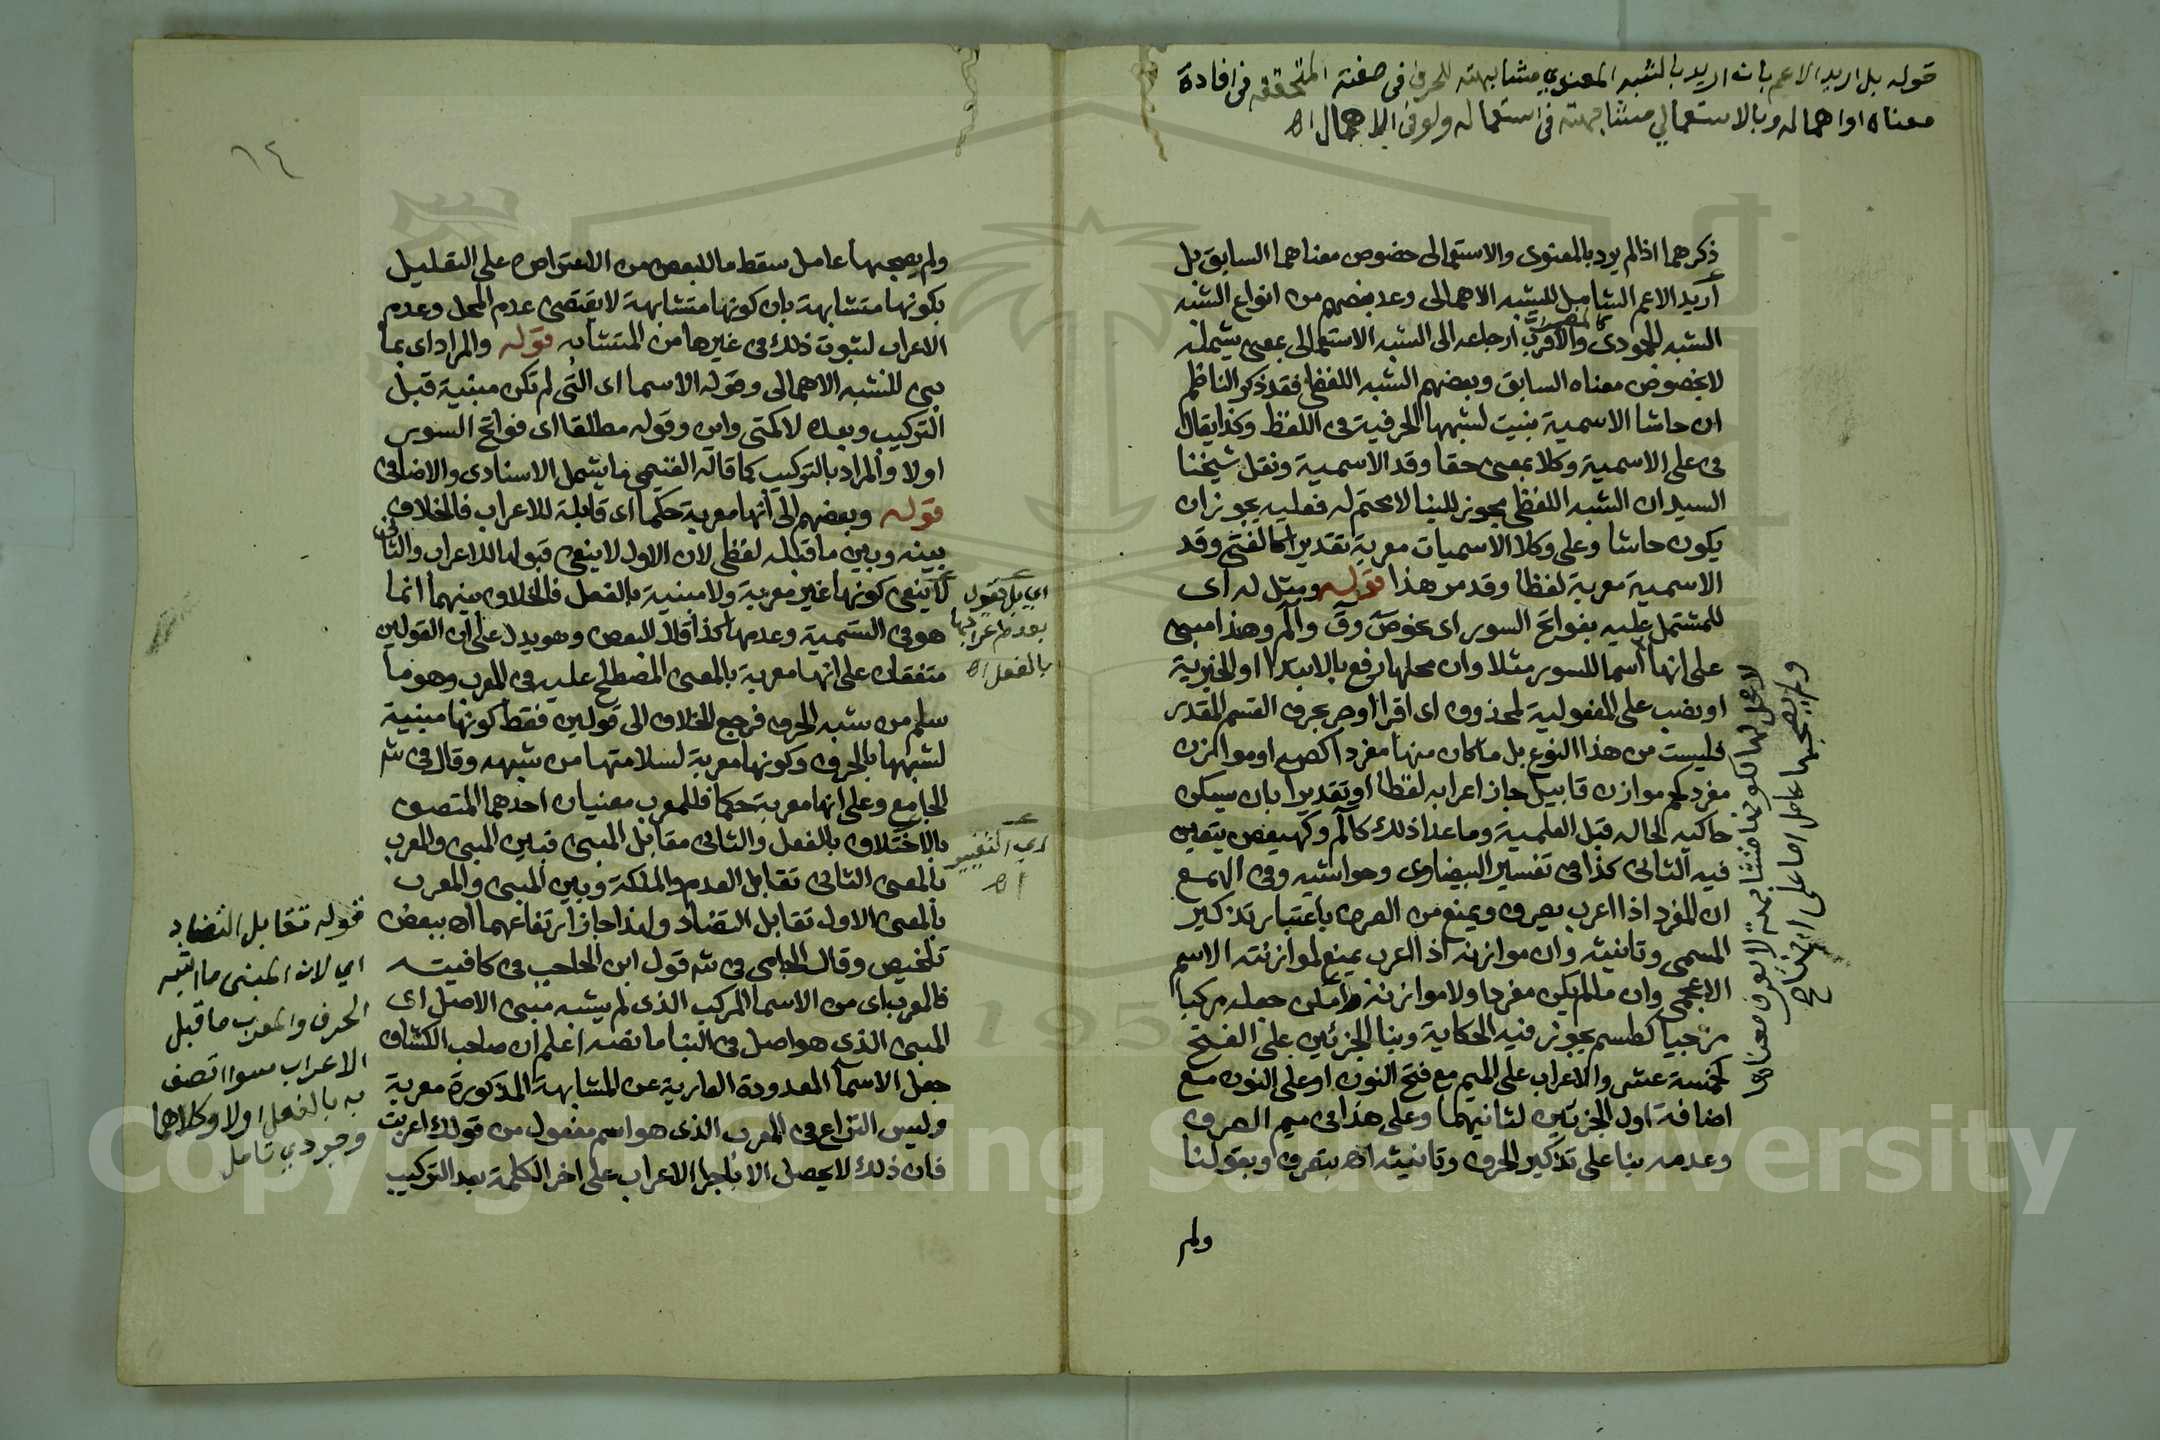 قوله بل اريد الاعم بان اريد بالشبه المعنوي مشابهته للحرف في صفته المتحققه في افادة
معناه او اهماله وبالاستعمالي مشابهته في استعماله ولو في الاهمال اه
ذكرهما اذا لم يرد بالمعنوى والاستعمالى خصوص معناهما السابق بل
أريد الاعم الشامل للشبه الاهمالى وعد بعضهم من انواع الشبه
الشبه الجمودى والاقرب ارجاعه الى الشبه الاستعمالى بمعنى يشمله
لا بخصوص معناه السابق وبعضهم الشبه اللفظى فقد ذكر الناظم
ان حاشا الاسمية بنيت لشبهها الحرفية فى اللفظ وكذا يقال
فى على الاسمية وكلا بمعنى حقا وقد الاسمية ونقل شيخنا
السيد ان الشبه اللفظى مجوز للبنا لا محتم له فعليه يجوز ان
يكون حاشا وعلى وكلا الاسميات معربة تقديرا كالفتى وقد
الاسمية معربة لفظا وقد مر هذا قوله ومثل له اى
للمشتمل عليه بفواتح السور اى نحو ص وق والم وهذا مبنى
على انها أسما للسور مثلا وان محلها رفع بالابتدا او الخبرية
او نصب على المفعولية لمحذوف اى اقرا او جر بحرف القسم المقدر
فليست من هذا النوع بل ما كان منها مفردا كص او موازن
مفرد كحم موازن قابيل جاز اعرابه لفظا او تقديرا بان يسكن
حاكيه الحاله قبل العلمية وما عدا ذلك كالم وكهيعص يتعين
فيه الثانى كذا فى تفسير البيضاوى وحواشيه وفى الهمع
ان المفرد اذا اعرب يصرف ويمنع من الصرف باعتبار تذكير
المسمى وتانيثه وان موازنه اذا اعرب يمنع لموازنته الاسم
الاعجمى وان ما لم يكن مفردا ولا موازنة وامكن جعله مركبا
مزجيا كطسم يجوز فيه الحكاية وبنا الجزئين على الفتح
كخمسة عشر والاعراب على الميم مع فتح النون او على النون مع
اضافة اول الجزئين لثانيهما وعلى هذا فى ميم الصرف
وعدمه بنا على تذكير الحرف وتانيثه اه بتصرف وبقولنا
ولم
لا محل لها لكونها متشابهة لا يعرف معناها
ولم يصحبها عامل اما على احتياج
٦٤
ولم يصحبها عامل سقط ما للبعض من الاعتراض على التعليل
بكونها متشابهة بان كونها متشابهة لا يقتضى عدم المحل وعدم
الاعراب لثبوت ذلك فى غيرها من المتشابه قوله والمراد اى بما
بنى للشبه الاهمالى وقوله الاسما اى التى لم تكن مبنية قبل
التركيب وبعده لا كمتى واين وقوله مطلقا اى فواتح السور
اولا والمراد بالتركيب كما قاله الغنيمى ما يشمل الاسنادى والاضافى
قوله وبعضهم الى انها معربة حكما اى قابلة للاعراب فالخلاف
بينه وبين ما قبله لفظى لان الاول لا ينفى قبولها للاعراب والثانى
لا ينفى كونها غير معربة ولا مبنية بالفعل فالخلاف بينهما انما
هو فى التسمية وعدمها كذا قال البعض وهو يدل على ان القولين
متفقان على انها معربة بالمعنى المصطلح عليه فى المعرب وهو ما
سلم من شبه الحرف فرجع الخلاف الى قولين فقط كونها مبنية
لشبهها بالحرف وكونها معربة لسلامتها من شبهه وقال فى شـ
الجامع وعلى انها معربة حكما فللمعرب معنيان احدهما المتصف
بالاختلاف بالفعل والثانى مقابل المبنى فبين المبنى والمعرب
بالمعنى الثانى تقابل العدم والملكة وبين المبنى والمعرب
بالمعنى الاول تقابل التضاد ولذا جاز ارتفاعهما اه ببعض
تلخيص وقال الجامى فى شـ قول ابن الحاجب فى كافيته
فالمعرب اى من الاسما المركب الذى لم يشبه مبنى الاصل اى
المبنى الذى هو اصل فى البنا ما نصه اعلم ان صاحب الكشاف
جعل الاسما المعدودة العارية عن المشابهة المذكورة معربة
وليس النزاع فى المعرب الذى هو اسم مفعول من قولك اعربت
فان ذلك لا يحصل الا باجرا الاعراب على اخر الكلمة بعد التركيب
اي بل يقول
بالفعل اه
اي التغيير
اه
قوله تقابل التضاد
اي لان المبنى ما اشبه
الحرف والمعرب ما قبل
الاعراب سوا اتصف
به بالفعل اولا وكلاهما
وجودي تامل
1957
Copyright © King Saud University